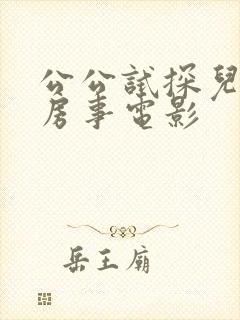 公公試探兒
房事電影
岳王廟